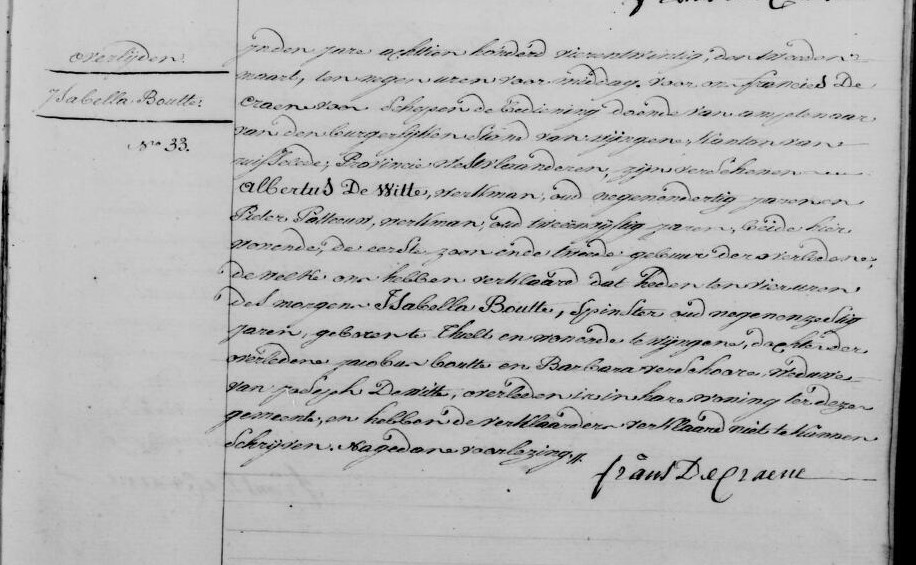 overlijden
Isabella Boutte
No 33.
in den jare achttien honderd vierentwintig, den tweeden
maart, ten negen uren voor middag, voor ons francies De
Craene van Schepen de bediening doende van amptenaar
van den burgerlijken Stand van wijngene, Kanton van
ruisselede, Provincie westvlaanderen, zijn verschenen
Albertus De Witte, werkman, oud negenendertig jaren en
Pieter, werkman, oud tweenvijftig jaren, beide hier
wonende, de eerste zoon ende tweede gebuur der overledene,
de welke ons hebben verklaard dat heden ten vier uren
des morgens Isabella Boutte, Spinster oud negenenzestig
jaren, geboren te Thielt en wonende te wijngene, dochter der
overledene jacobus boutte en Barbara verschoore, weduwe
van joseph De witte, overleden is in hare woning ter dezer
gemeente, en hebben de verklaarders verklaard niet te kunnen
Schrijven. Na gedane voorlezing.
frans DeCraene